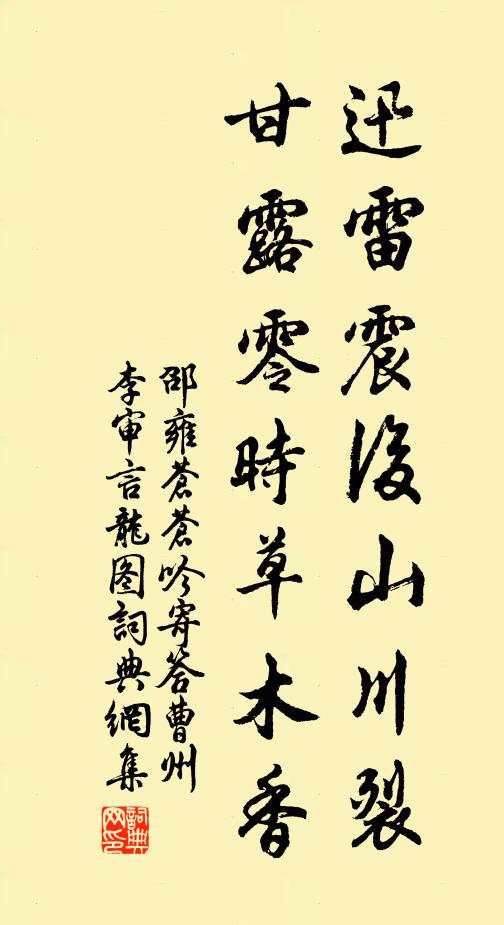 迅雷震後山川裂
甘露零時草木香
邵雍蒼蒼吟寄答曹州
李审言龍图詞典網集
詞典
网印